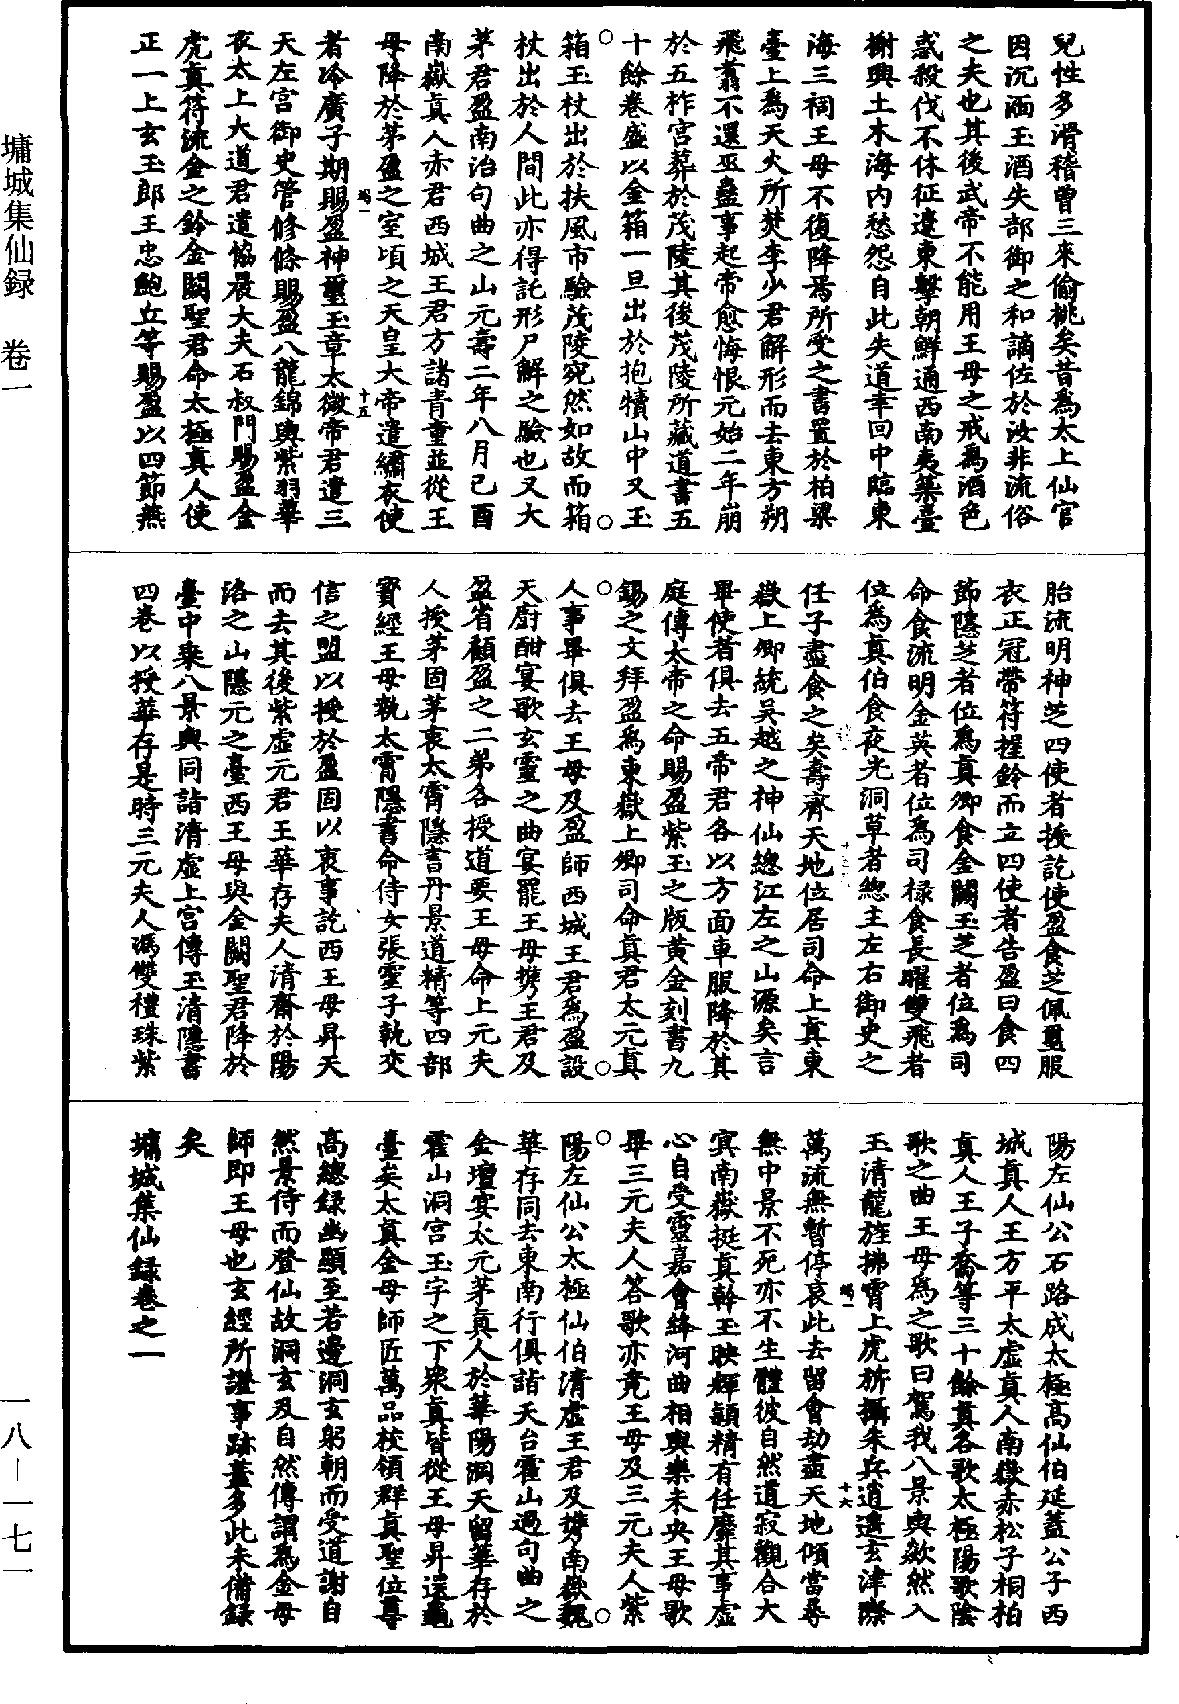 墉城集仙録　卷一
兒性多滑稽曾三來偷桃矣昔爲太上仙官
因沉湎玉酒失部御之和謫佐於汝非流俗
之夫也其後武帝不能用王母之戒爲酒色
惑殺伐不休征遼東擊朝鮮通西南夷築臺
榭興土木海内愁怨自此失道幸回中臨東
海三祠王母不復降焉所受之書置於柏梁
臺上爲天火所焚李少君解形而去東方朔
飛翥不還巫蠱事起帝愈悔恨元始二年崩
於五柞宮葬於茂陵其後茂陵所藏道書五
十餘卷盛以金箱一旦出於抱犢山中又玉
箱玉杖出於扶風市驗茂陵宛然如故而箱
杖出於人間此亦得託形尸解之驗也又大
茅君盈南治句曲之山元壽二年八月己酉
南嶽真人赤君西城王君方諸青童並從王
母降於茅盈之室頃之天皇大帝遣繡衣使
者冷廣子期賜盈神璽玉章太微帝君遣三
天左宮御史管修條賜盈八龍錦輿紫羽華
衣太上大道君遣協晨大夫石叔門賜盈金
虎真符流金之鈴金闕聖君命太極真人使
正一上玄玉郎王忠鮑丘等賜盈以四節燕
胎流明神芝四使者授訖使盈食芝佩璽服
衣正冠帶符握鈴而立四使者告盈曰食四
節隱芝者位爲真卿食金闕玉芝者位爲司
命食流明金英者位爲司祿食長曜雙飛者
位爲真伯食夜光洞草者總主左右御史之
任子盡食之矣壽齊天地位居司命上真東
嶽上卿統吳越之神仙總江左之山源矣言
畢使者俱去五帝君各以方面車服降於其
庭傳太帝之命賜盈紫玉之版黄金刻書九
錫之文拜盈爲東嶽上卿司命真君太元真
人事畢俱去王母及盈師西城王君爲盈設
天廚酣宴歌玄靈之曲宴罷王母攜王君及
盈省顧盈之二弟各授道要王母命上元夫
人授茅固茅衷太霄隱書丹景道精等四部
寶經王母執太霄隱書命侍女張靈子執交
信之盟以授於盈固以衷事訖西王母昇天
而去其後紫虛元君王華存夫人清齋於陽
洛之山隱元之臺西王母與金闕聖君降於
臺中乘八景輿同詣清虛上宮傳玉清隱書
四卷以授華存是時三元夫人馮雙禮珠紫
陽左仙公石路成太極高仙伯延蓋公子西
城真人王方平太虛真人南嶽赤松子桐柏
真人王子喬等三十餘真各歌太極陽歌陰
歌之曲王母爲之歌曰駕我八景輿欻然入
玉清龍旌拂霄上虎旂攝朱兵逍遥玄津際
萬流無暫停哀此去留會劫盡天地傾當尋
無中景不死亦不生體彼自然道寂觀合大
冥南嶽挺真幹玉映輝穎精有任靡其事虛
心自受靈嘉會絳河曲相與樂未央王母歌
畢三元夫人荅歌亦竟王母及三元夫人紫
陽左仙公太極仙伯清虛王君及攜南嶽魏
華存同去東南行俱詣天台霍山過句曲之
金壇宴太元茅真人於華陽洞天留華存於
霍山洞宮玉宇之下衆真皆從王母昇還龜
臺矣太真金母師匠萬品校領群真聖位尊
高總録幽顯至若邊洞玄躬朝而受道謝自
然景侍而登仙故洞玄及自然傳謂爲金母
師即王母也玄經所證事跡蓋多此未備録
矣
墉城集仙録卷之一
一八－一七一